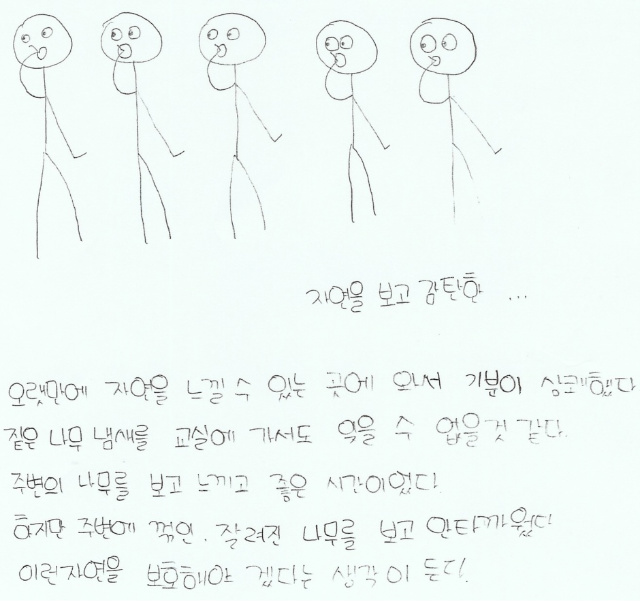 자연을 보고 감탄한 ...
오랫만에 자연을 느낄 수 있는 곳에 와서 기분이 상쾌했다
짙은 나무 냄새를 교실에 가서도 잊을 수 없을것 같다.
주변의 나무를 보고 느끼고 좋은 시간이었다.
하지만 주변에 꺾인. 잘려진 나무를 보고 안타까웠다
이런자연을 보호해야 겠다는 생각이 든다.